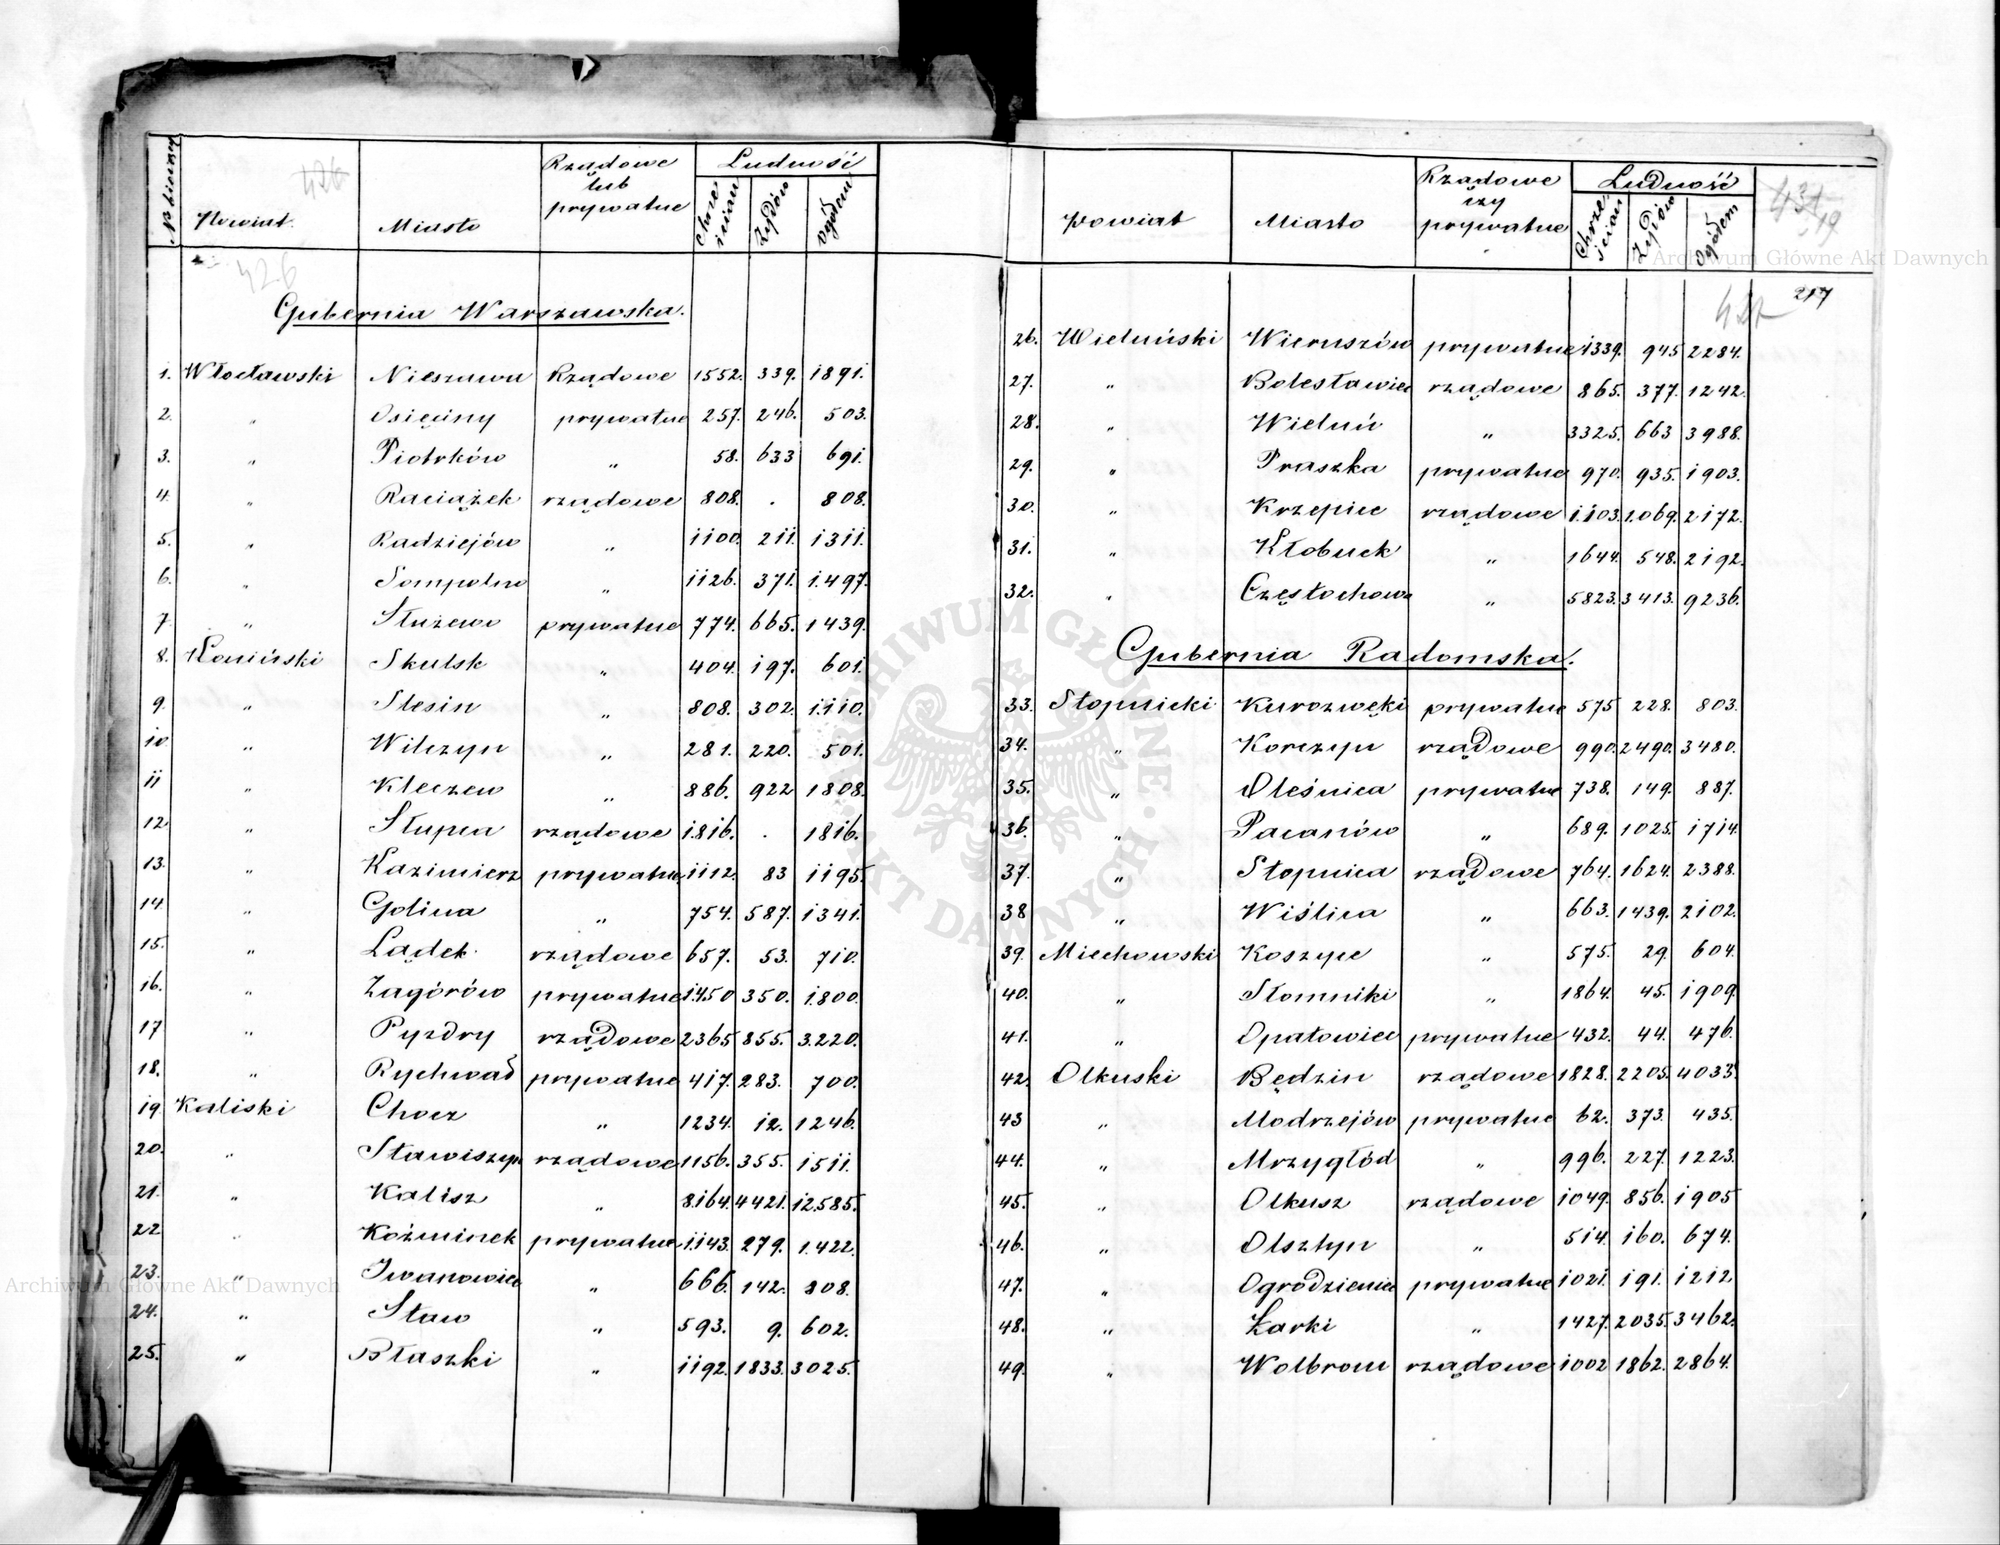 N bieżący Powiat Miasto Rządowe lub prywatne Ludność Chrześcian Żydów Ogółem
426
426
Gubernia Warszawska.
1. Włocławski Nieszawa Rządowe 1552. 339. 1891.
2. „ Osięciny prywatne 257. 246. 503.
3. „ Piotrków „ 58. 633 691.
4. „ Raciążek rządowe 808. . 808.
5. „ Radziejów „ 1100. 211. 1311.
6. „ Sompolno „ 1126. 371. 1.497.
7. „ Służewo prywatne 774. 665. 1439.
8. Koniński Skulsk „ 404. 197. 601.
9. „ Slesin „ 808. 302. 1.110.
10. „ Wilczyn „ 281. 220. 501.
11 „ Kleczew „ 886. 922 1808.
12. „ Słupca rządowe 1.816. . 1816.
13. „ Kazimierz prywatne 1112. 83 1195.
14. „ Golina „ 754. 587. 1341.
15. „ Lądek. rządowe 657. 53. 710.
16. „ Zagórów prywatne 1.450 350. 1.800.
17 „ Pyzdry rządowe 2365 855. 3.220.
18. „ Rychwał prywatne 417. 283. 700.
19 Kaliski Chocz „ 1234. 12. 1246.
20. „ Stawiszyn rządowe 1156. 355. 1511.
21. „ Kalisz „ 8.164. 4421. 12.585.
22 „ Koźminek prywatne 1.143. 279. 1.422.
23. „ Iwanowice „ 666. 142. 808.
24. „ Staw „ 593. 9. 602.
25. „ Błaszki „ 1192. 1833. 3025.
Powiat Miasto Rządowe czy prywatne Ludność Chrześcian Żydów Ogółem
217
26. Wieluński Wieruszów prywatne 1339. 945 2284.
27. „ Bolesławiec rządowe 865. 377. 1242.
28. „ Wieluń „ 3325. 663 3988.
29. „ Praszka prywatne 970. 935. 1903.
30. „ Krzepice rządowe 1.103. 1.069. 2172.
31. „ Kłobuck „ 1644. 548. 2192.
32. „ Częstochowa „ 5823. 3413. 9236.
Gubernia Radomska.
33. Stopnicki Kurozwęki prywatne 575 228. 803.
34. „ Korczyn rządowe 990. 2490. 3480.
35. „ Oleśnica prywatne 738. 149. 887.
36. „ Pacanów „ 689. 1025. 1714.
37. „ Stopnica rządowe 764. 1624. 2388.
38 „ Wiślica „ 663. 1439. 2102.
39. Miechowski Koszyce „ 575. 29. 604.
40. „ Słomniki „ 1864. 45. 1909.
41. „ Opatowiec prywatne 432. 44. 476.
42. Olkuski Będzin rządowe 1828. 2205. 4033.
43 „ Modrzejów prywatne 62. 373. 435.
44. „ Mrzygłód „ 996. 227. 1223.
45. „ Olkusz rządowe 1049. 856. 1905
46. „ Olsztyn „ 514. 160. 674.
47. „ Ogrodzieniec prywatne 1021. 191. 1212.
48. „ Żarki „ 1427. 2035. 3462.
49. „ Wolbrom rządowe 1002 1862. 2864.
Archiwum Główne Akt Dawnych
Archiwum Główne Akt Dawnych
ARCHIWUM GŁÓWNE AKT DAWNYCH